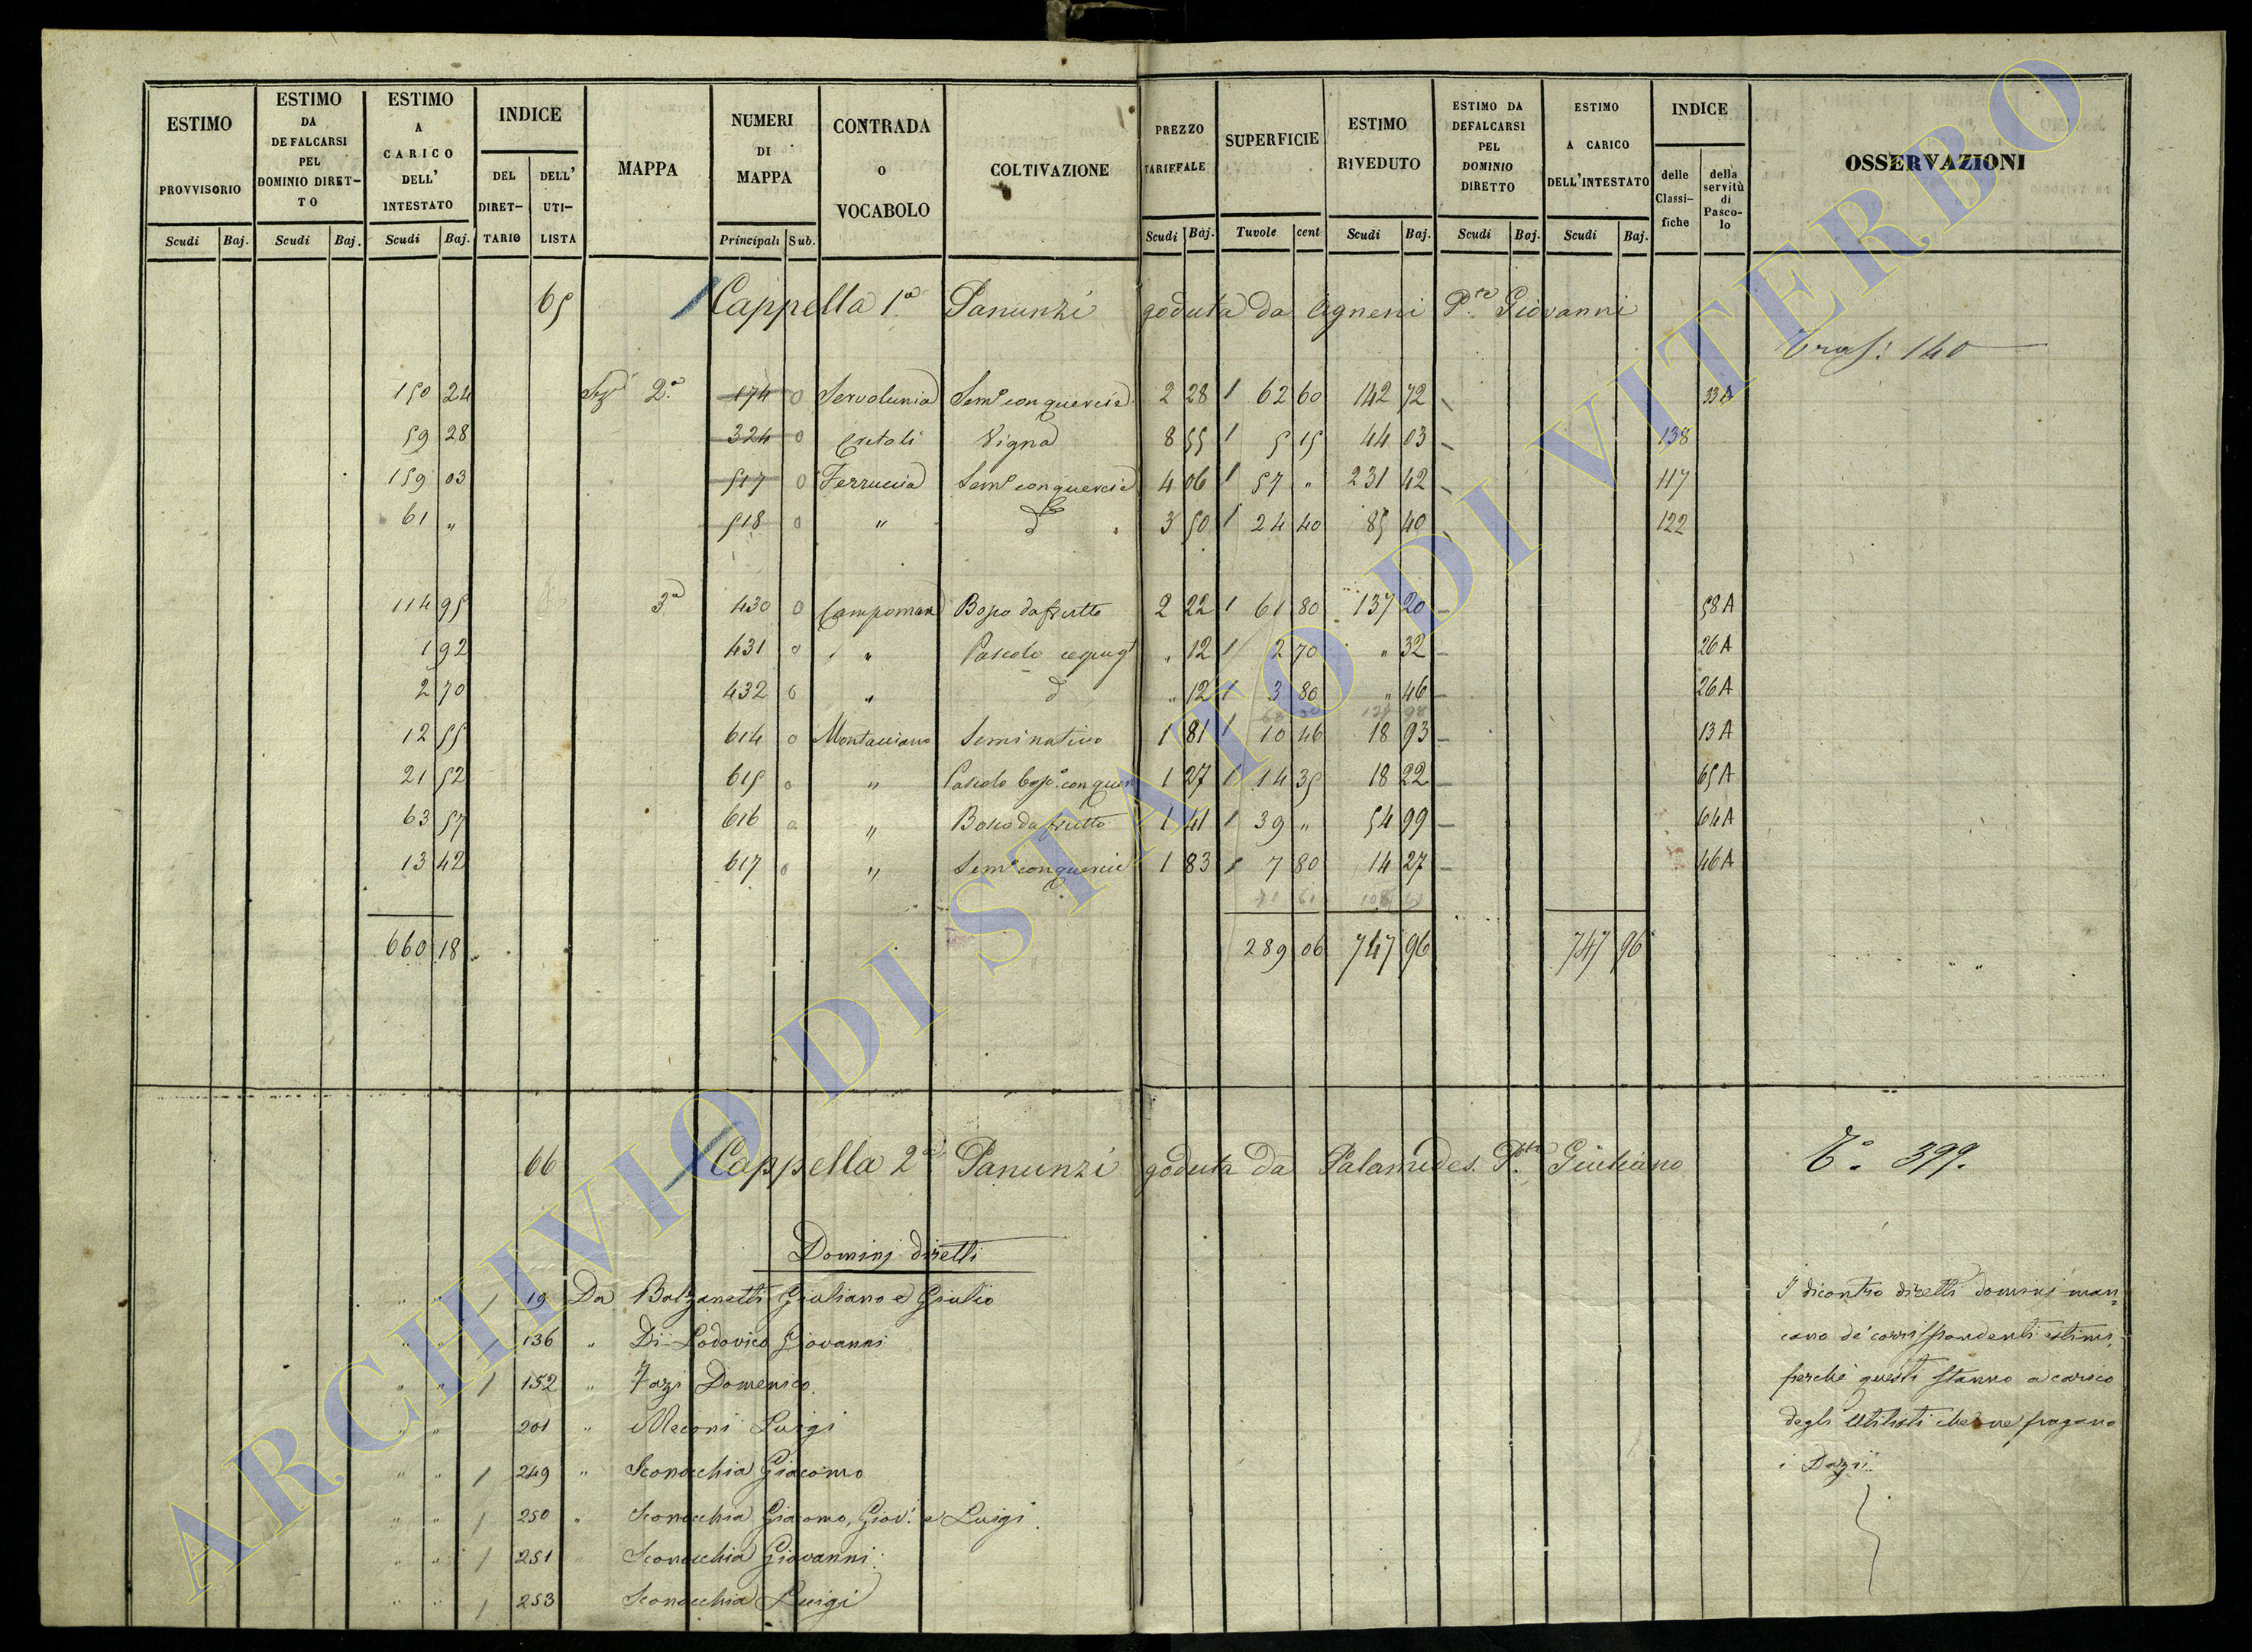 ESTIMO PROVVISORIO
ESTIMO DA DEFALCARSI PEL DOMINIO DIRET-TO
ESTIMO A CARICO DELL' INTESTATO
INDICE
DEL DIRET-TARIO
DELL' UTI-LISTA
MAPPA
NUMERI DI MAPPA
CONTRADA O VOCABOLO
COLTIVAZIONE
PREZZO TARIFFALE
SUPERFICIE
ESTIMO RIVEDUTO
ESTIMO DA DEFALCARSI PEL DOMINIO DIRETTO
ESTIMO A CARICO DELL'INTESTATO
INDICE
delle Classi-fiche
della servitù di Pasco-lo
OSSERVAZIONI
Scudi Baj. Scudi Baj. Scudi Baj. Principali Sub. Scudi Baj. Tavole cent Scudi Baj. Scudi Baj. Scudi Baj.
65 Cappella 1a Panunzi goduta da Agneni Pte Giovanni
140
150 24 Sez 2a 174 0 Servolunia Semo con quercie 2 28 1 62 60 142 72 33A
59 28 324 0 Vigna 8 55 1 5 15 44 03 138
159 03 517 0 Ferruccia Semo con quercie 4 06 1 57 " 231 42 117
61 " 518 0 " d 3 50 1 24 40 85 40 122
114 95 3a 430 0 Bosco da frutto 2 22 1 61 80 137 20 58A
1 92 431 0 " Pascolo " 12 1 2 70 " 32 26A
2 70 432 0 " d " 12 1 3 80 " 46 26A
12 55 614 0 Montacciano Seminativo 1 81 1 10 46 18 93 13A
21 52 615 0 " Pascolo bosco con quer 1 27 1 14 35 18 22 65A
63 57 616 0 " Bosco da frutto 1 41 1 39 " 54 99 64A
13 42 617 0 " Semo con quercie 1 83 1 7 80 14 27 46A
660 18 289 06 747 96 747 96
66 Cappella 2a Panunzi goduta da Palamides Pte Giuliano
To. 399.
Dominj diretti
" " / 19 Da Balzanetti Giuliano e Giulio
" " / 136 " Di Lodovico Giovanni
" " / 152 " Fazi Domenico
" " 201 " Meconi Luigi
" " / 249 " Sconocchia Giacomo
" " / 250 " Sconocchia Giacomo, Giov. e Luigi
" " / 251 " Sconocchia Giovanni
" " / 253 Sconocchia Luigi
I dicontro diretti dominj man=
cano de' corrispondenti estimi,
perchè questi stanno a carico
degli Utilisti che ne pagano
i Dazii
ARCHIVIO DI STATO DI VITERBO